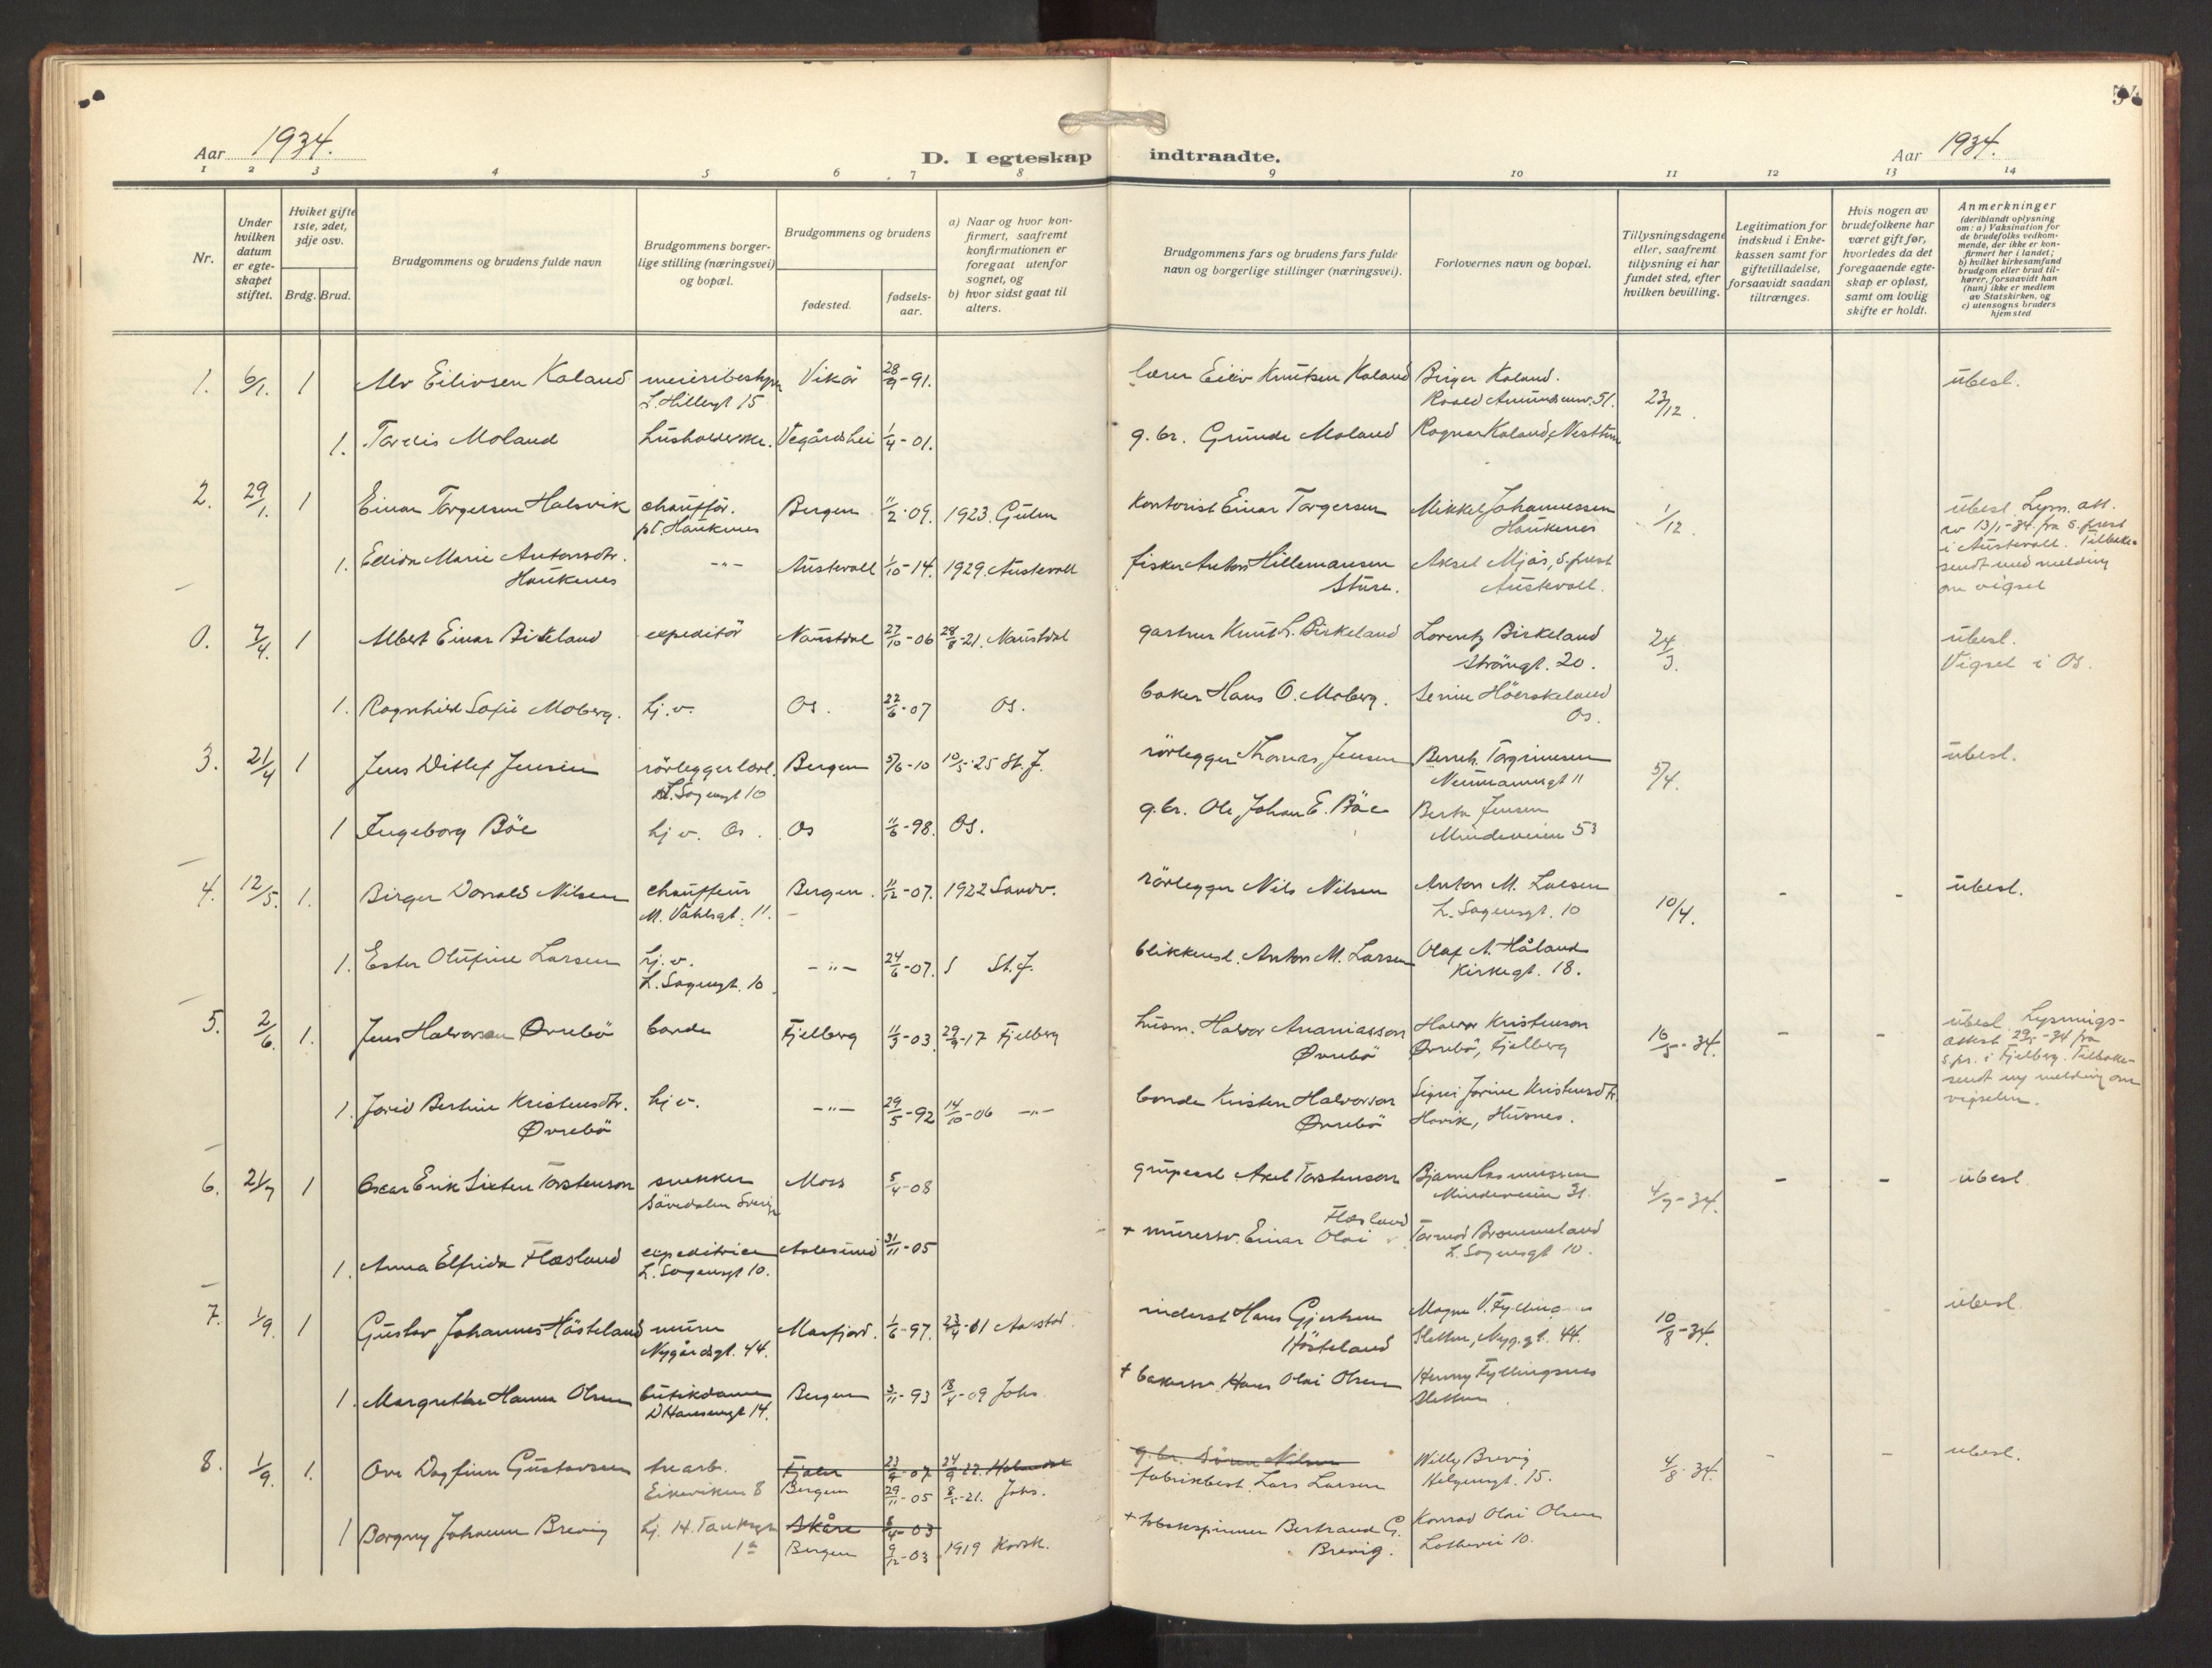 Aar 1934.
D. I egteskap indtraadte.
Aar 1934.
1 2 3 4 5 6 7 8 9 10 11 12 13 14
Nr.
Under hvilken datum er egteskapet stiftet.
Hviket gifte 1ste, 2det, 3dje osv.
Brdg. Brud.
Brudgommens og brudens fulde navn
Brudgommens borgerlige stilling (næringsvei) og bopæl.
Brudgommens og brudens
fødested.
fødselsaar.
a) Naar og hvor konfirmert, saafremt konfirmationen er foregaat utenfor sognet, og
b) hvor sidst gaat til alters.
Brudgommens fars og brudens fars fulde navn og borgerlige stillinger (næringsvei).
Forlovernes navn og bopæl.
Tillysningsdagene eller, saafremt tillysning ei har fundet sted, efter hvilken bevilling.
Legitimation for indskud i Enkekassen samt for giftetilladelse, forsaavidt saadan tiltrænges.
Hvis nogen av brudefolkene har været gift før, hvorledes da det foregaaende egteskap er opløst, samt om lovlig skifte er holdt.
Anmerkninger
(deriblandt oplysning om: a) Vaksination for de brudefolks vedkommende, der ikke er konfirmert her i landet; b) hvilket kirkesamfund brudgom eller brud tilhører, forsaavidt han (hun) ikke er medlem av Statskirken, og c) utensogns bruders hjemsted
1. 6/1. 1 Alv Eilivsen Kaland Vikör 28/9-91. lærer Eiliv Knutsen Kaland Birger Kaland. 23/12. ubesl.
L. Hillesgt 15 Roald Amundsensv. 51.
1. Tordis Moland husholderske. Vegårdshei 1/4-01. g.br. Grunde Moland Ragnar Kaland, Nesttun
2. 29/1. 1 Einar Torgersen Halsvik chauffør. Bergen 11/2-09. 1923. Gulen kontorist Einar Torgersen Mikkel Johannessen 1/12. ubesl. Lysn. att.
pt. Haukenes Haukenes av 13/1-34 fra s.prest
1. Edida Marie Antonsdtr. -"- Austevoll 1/10-14. 1929. Austevoll fisker Anton Hillemansen Aksel Mjøs, s.prest i Austevoll. Tilbake-
Haukenes Sture. Austevoll. sendt med melding
om vigsel
0. 7/4. 1 Albert Einar Birkeland expeditör Naustdal 27/10-06 28/8-21. Naustdal gartner Knut L. Birkeland Lorentz Birkeland 24/3. ubesl.
Strömgt. 20. Vigsel i Os.
1. Ragnhild Sofie Moberg. hj.v. Os. 22/6-07 Os. baker Hans O. Moberg. Serine
Os.
3. 21/4 1 Jens Ditlef Jensen rörleggerlærl. Bergen 5/6-10 10/5-25 St. J. rörlegger Thomas Jensen Bernh. Torgrimsen 5/4. ubesl.
L. Sagensgt 10 Neumannsgt 11
1 Ingeborg Böe hj v. Os. Os 11/6-98. Os. g.br. Ole Johan E. Böe Berta Jensen
Mindeveien 53
4. 12/5. 1. Birger Donald Nilsen chauffeur Bergen. 11/12-07. 1922 Sandv. rörlegger Nils Nilsen Anton M. Larsen 10/4. - - ubesl.
M. Vahlsgt. 11. L. Sagensgt. 10
1. Ester Olufine Larsen hj.v. -"- 24/6-07. St. J. blikkensl. Anton M. Larsen Olaf A. Håland
L. Sagensgt. 10. Kirkegt. 18.
5. 2/6. 1. Jens Halvorsen Øvrebö bonde Fjelberg 11/3-03. 29/9-17 Fjelberg husm. Halvor Ananiasson Halvor Kristenson 16/5-34. - - ubesl. Lysnings-
Øvrebö Øvrebö, Fjelberg attest 29/5-34 fra
s.pr. i Fjelberg. Tilbake-
1. Jorid Bertine Kristensdtr. hj v. -"- 29/5-92 14/10-06 -"- bonde Kristen Halvorson Signi Jorine Kristensdtr. sendt m melding om
Øvrebö Øvrebö Havik, Husnes. vigselen.
6. 21/7 1 Oscar Erik Sixten Torstenson snekker Moss 5/4-08 Axel Torstenson Bjarne Rasmussen 4/7-34. - - ubesl
Sävedalen Sverige Mindeveien 31.
1. Anna Elfrida Flesland expeditrice Aalesund 31/11-05 + murersv. Einar Olai Flesland Tormod Brommeland
L. Sagensgt 10. L. Sagensgt 10.
7. 1/9. 1 Gustav Johannes Hösteland murer Masfjord. 1/6-97. 23/4-01 Aarstad. inderst Hans Gjertsen Magne V. Fyllingsnes 10/8-34. ubesl.
Nygårdsgt. 44. Hösteland Sletten, Nyg.gt. 44.
1. Margrethe Hanna Olsen butikdame Bergen 3/11-93 18/4-09 Johs. + bakersv. Hans Olai Olsen Henny Fyllingsnes
D Hansensgt 14. Sletten
8. 1/9. 1. Ove Dagfinn Gustavsen Fjaler 23/9-07. 24/9-22. g.br. Sören Nilsen Willy Brevig 4/8-34. - - ubesl.
Eikeviken 8 Bergen 29/11-05 8/5-21. Johs. fabrikbest. Lars Larsen Helgensgt. 15.
1 Borgny Johanne Brevig hj. H. Tanksgt Skåre 8/4-03 + tobakspinner Bertrand G. Konrad Olai Olsen
1a Bergen 9/12-03 1919 Korsk. Brevig. Lothevei 10.